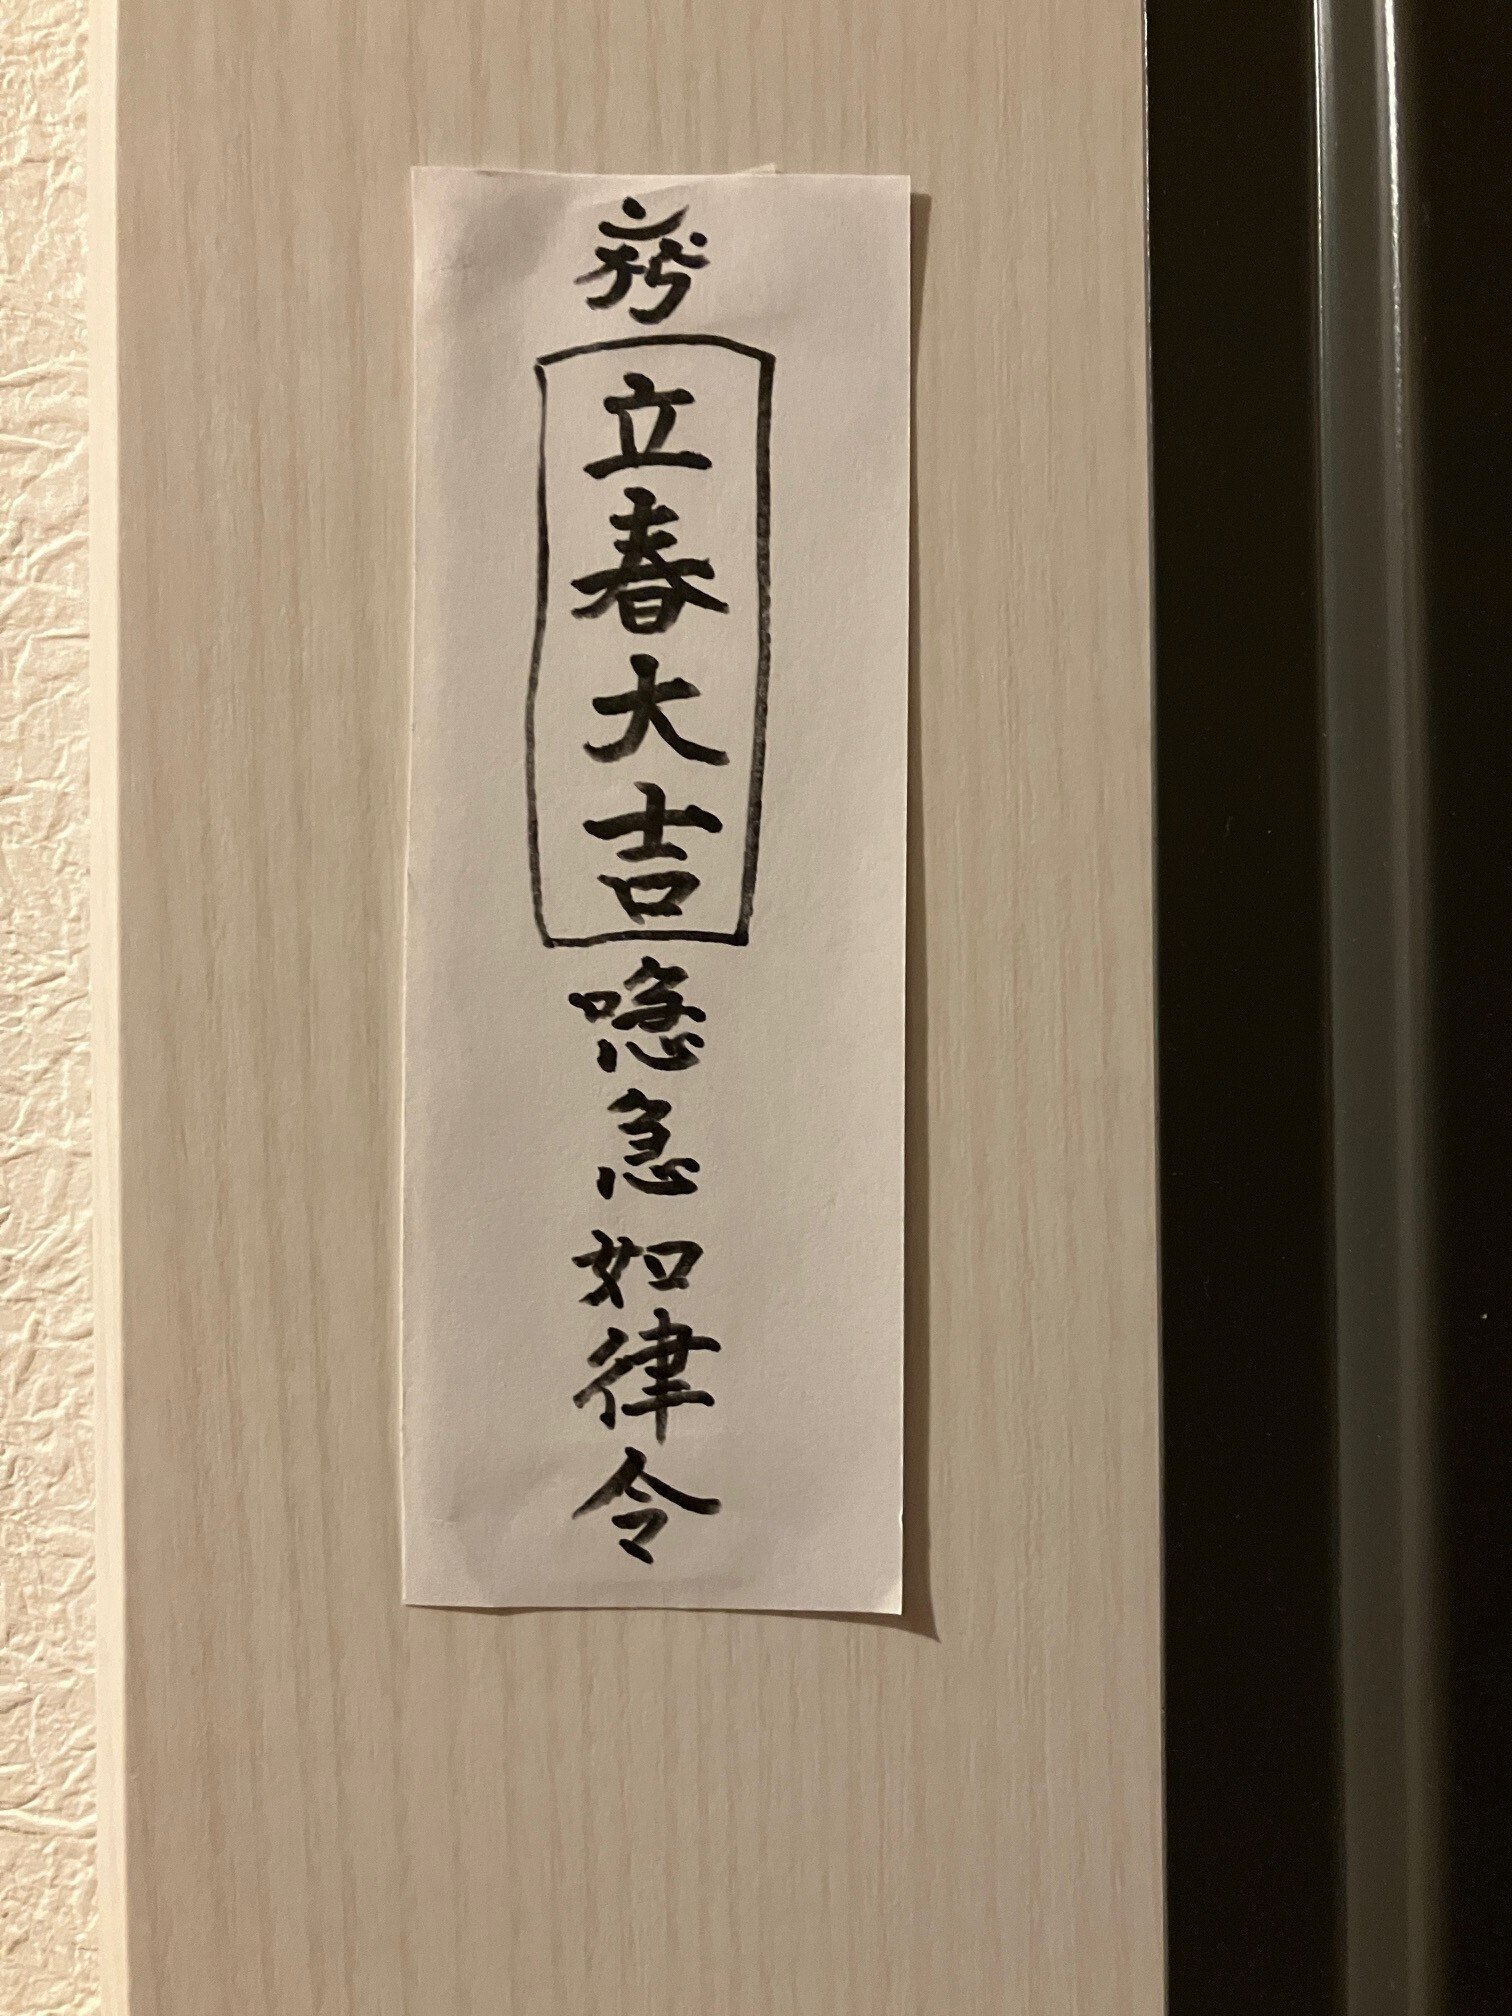 立春大吉
喼急如律令